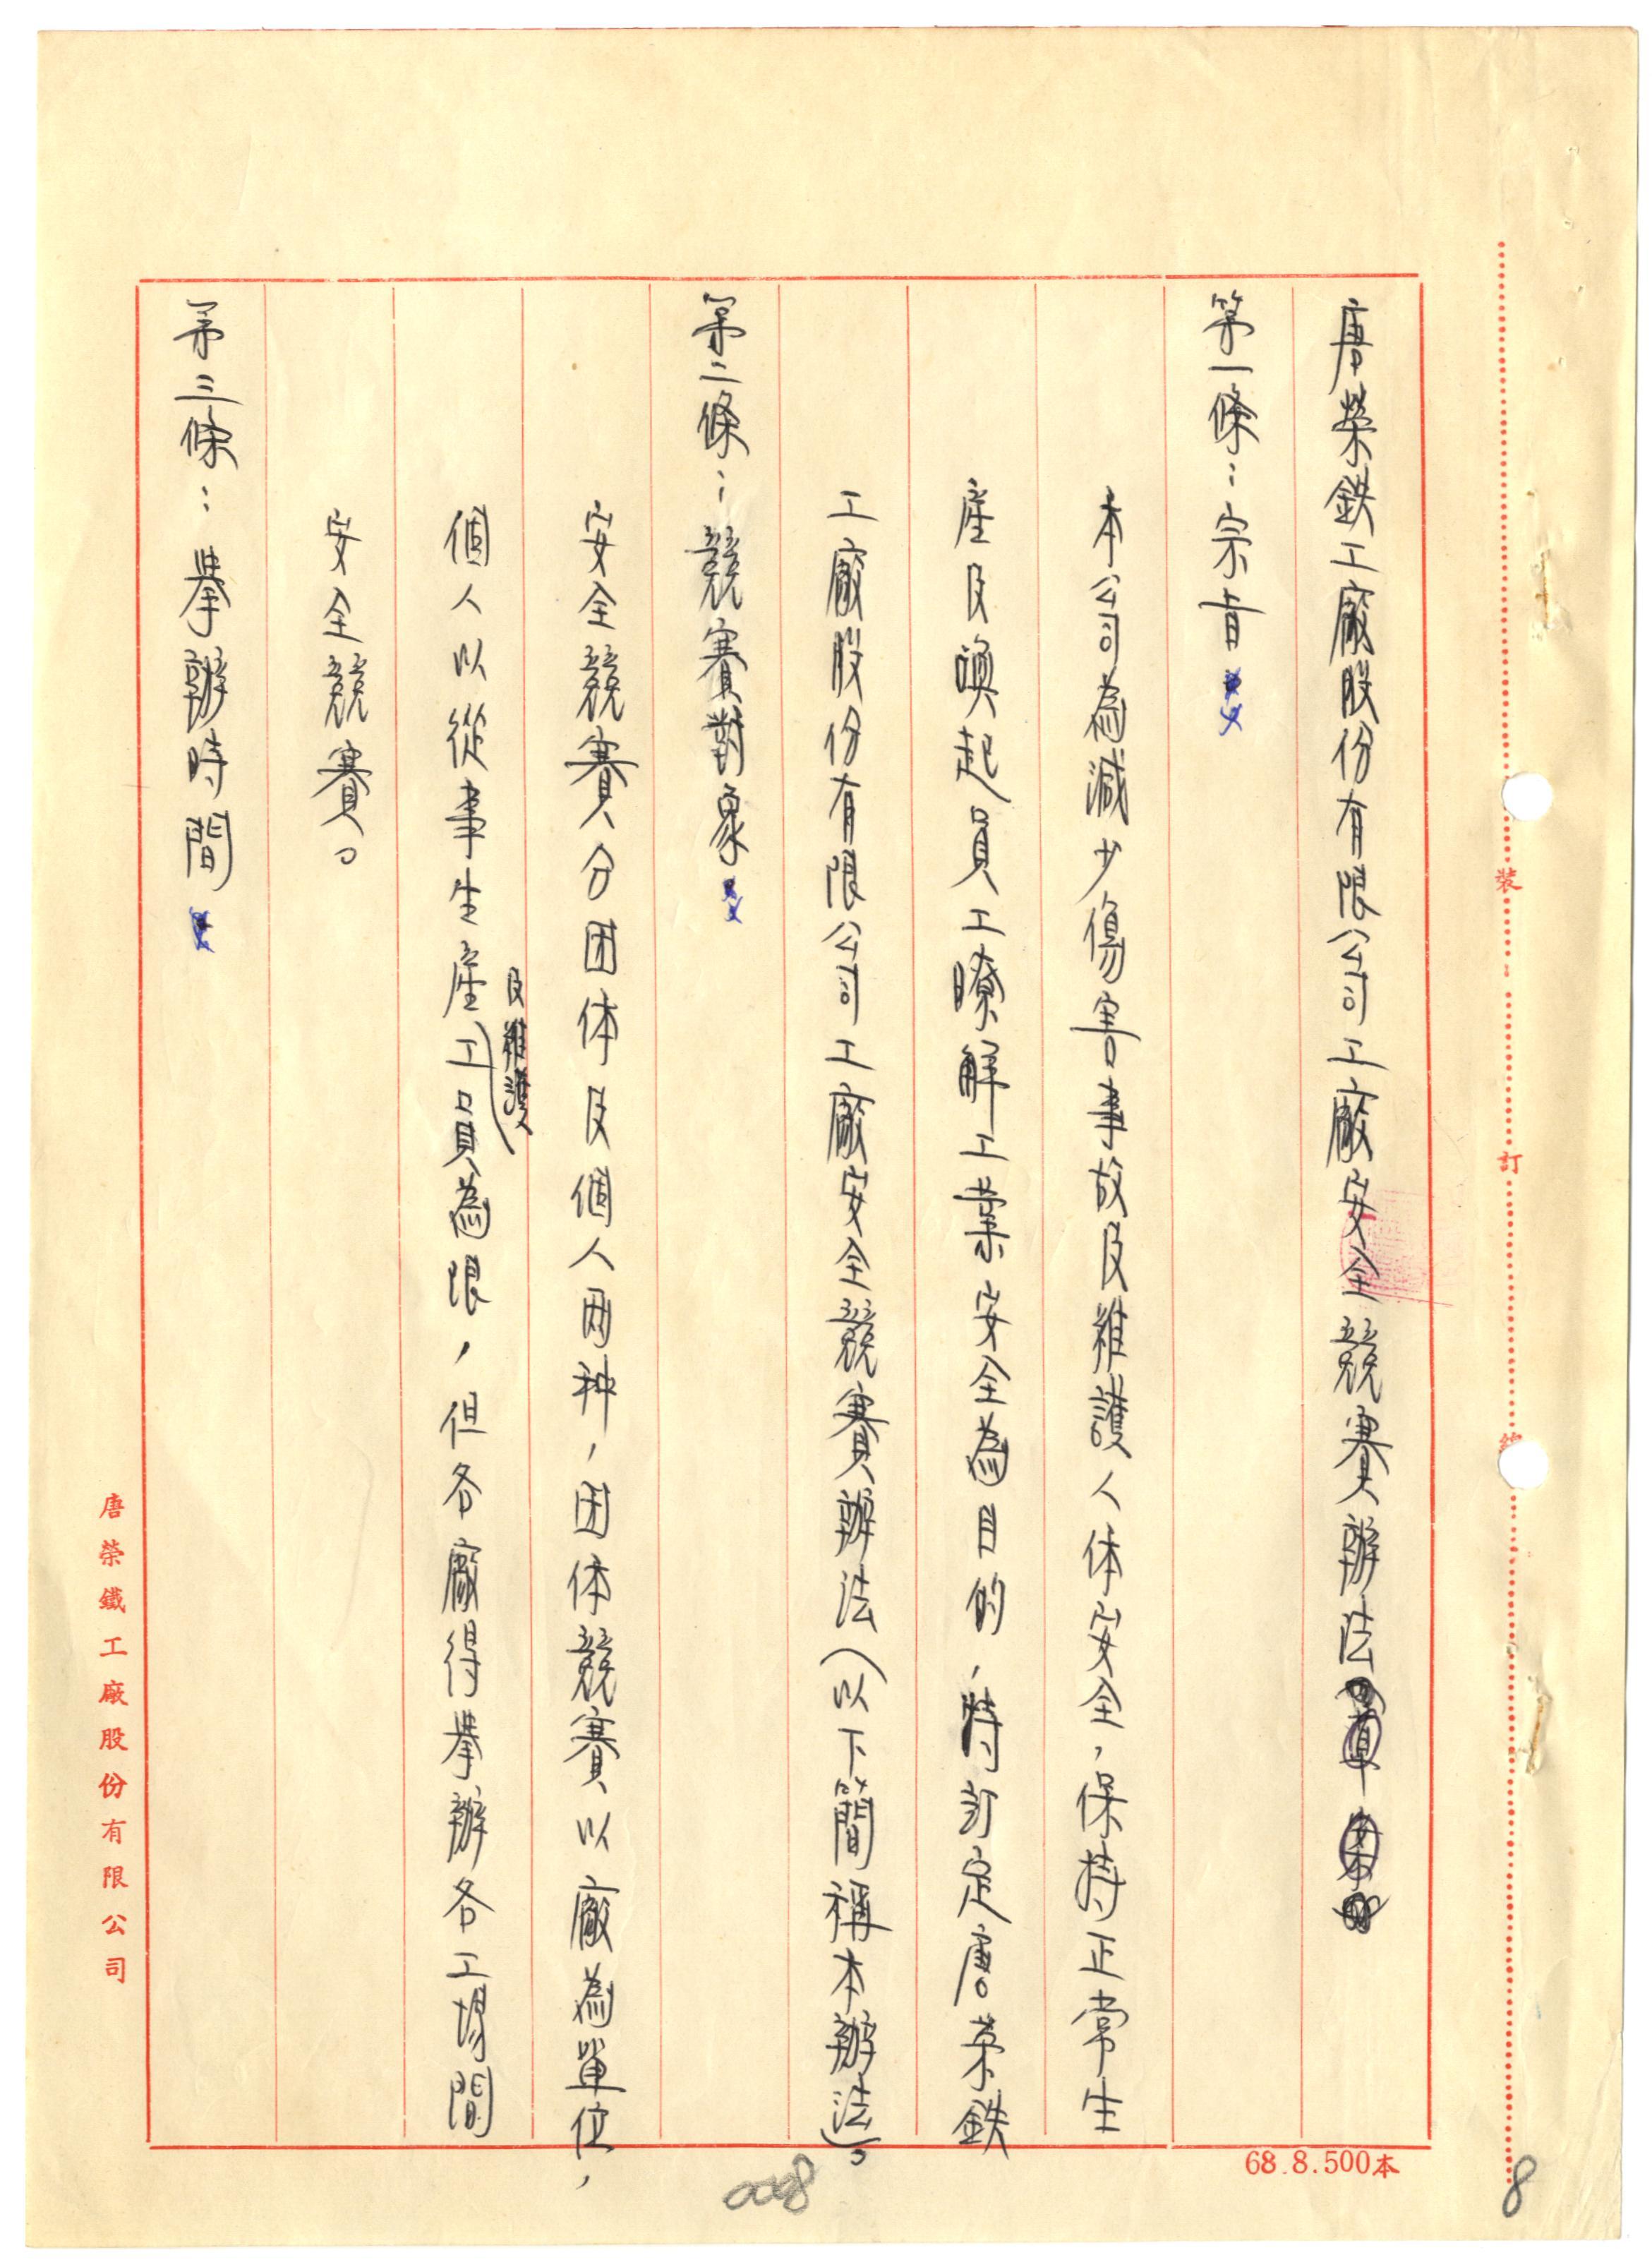 唐榮鉄工廠股份有限公司工廠安全競賽辦法
第一條：宗旨
本公司為減少傷害事故及維護人体安全，保持正常生
產及喚起員工瞭解工業安全為目的，特訂定唐荣鉄
工廠股份有限公司工廠安全競賽辦法（以下簡稱本辦法）。
第二條：競賽對象
安全競賽分团体及個人兩种，团体競賽以廠為單位，
及維護
個人以從事生產工員為限，但各廠得舉辦各工場間
安全競賽。
第三條：舉辦時間
裝
訂
線
唐榮鐵工廠股份有限公司
68.8.500本
008
8